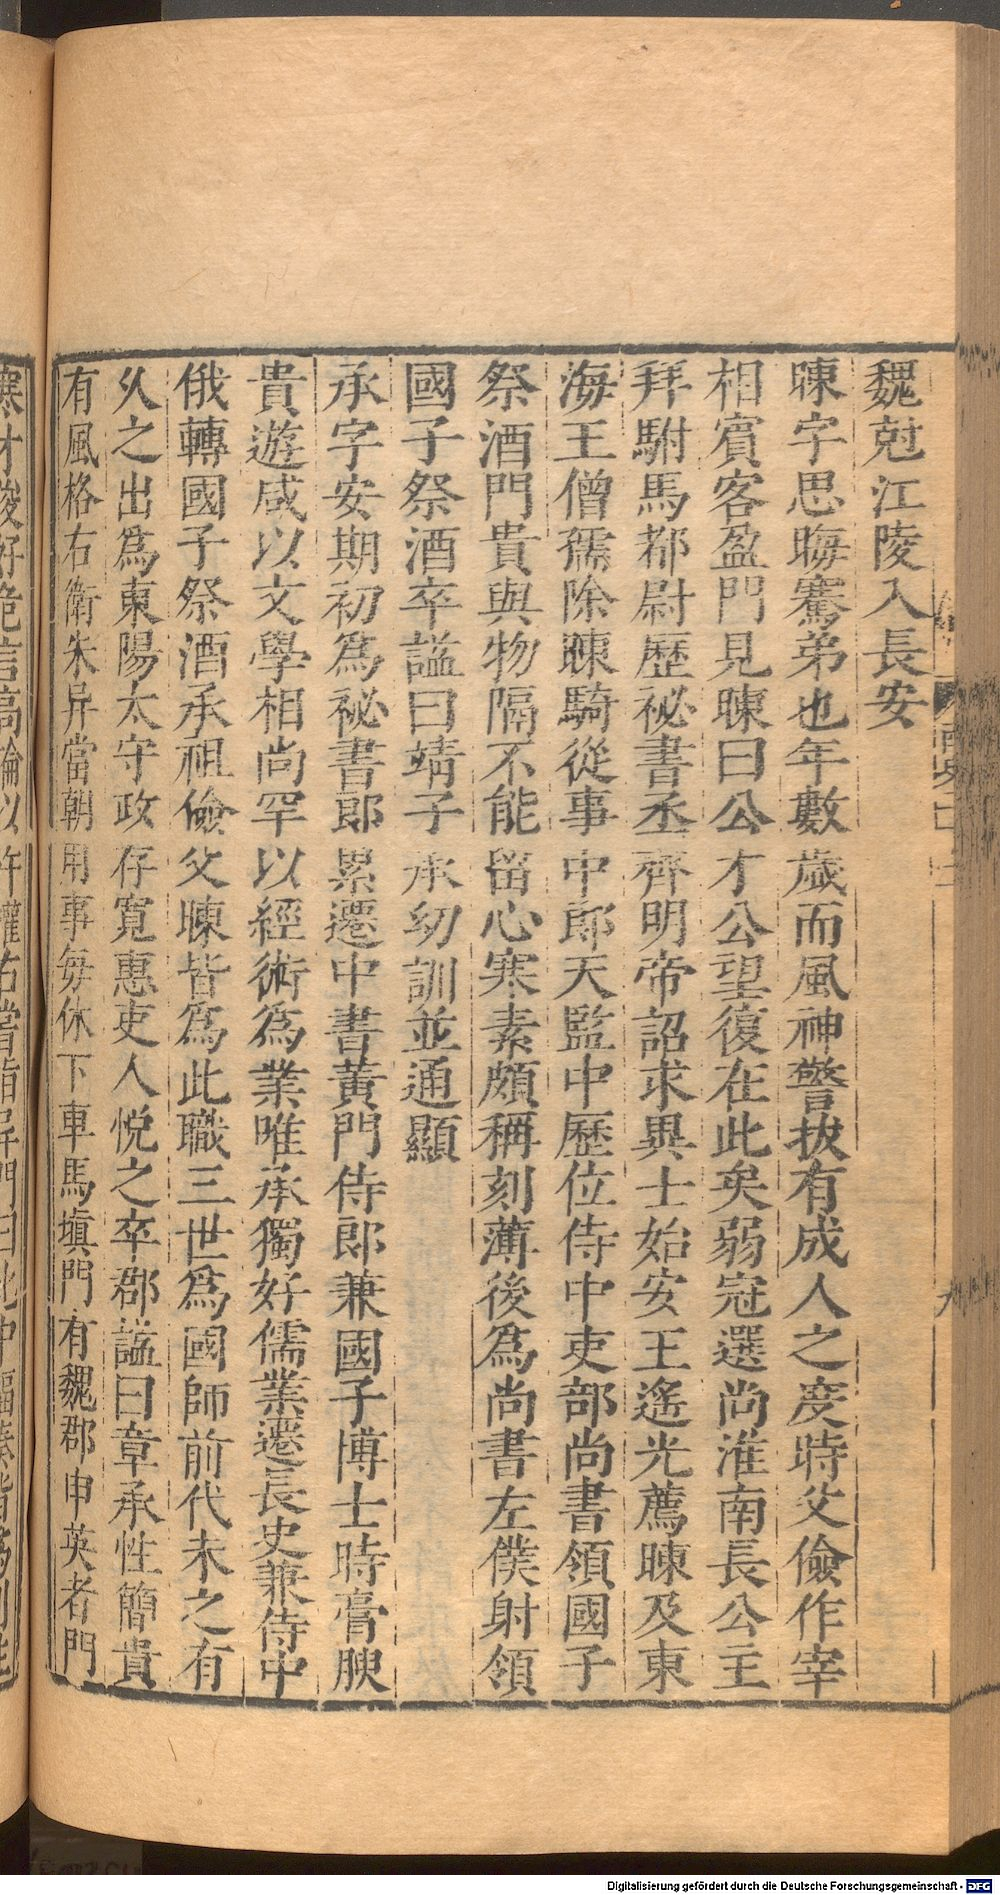 魏尅江陵入長安
暕字思晦騫弟也年數歲而風神警拔有成人之度時父儉作宰
相賓客盈門見暕曰公才公望復在此矣弱冠選尚淮南長公主
拜駙馬都尉歷祕書丞齊明帝詔求異士始安王遙光薦暕及東
海王僧孺除暕騎從事中郎天監中歷位侍中吏部尚書領國子
祭酒門貴與物隔不能留心寒素頗稱刻薄後爲尚書左僕射領
國子祭酒卒謚曰靖子承幼訓並通顯
承字安期初爲祕書郎累遷中書黃門侍郎兼國子博士時膏腴
貴遊咸以文學相尚罕以經術爲業唯承獨好儒業遷長史兼侍中
俄轉國子祭酒承祖儉父暕皆爲此職三世爲國師前代未之有
久之出爲東陽太守政存寬惠吏人悅之卒郡謚曰章承性簡貴
有風格右衛朱异當朝用事每休下車馬塡門有魏郡申英者門
Digitalisierung gefördert durch die Deutsche Forschungsgemeinschaft - DFG